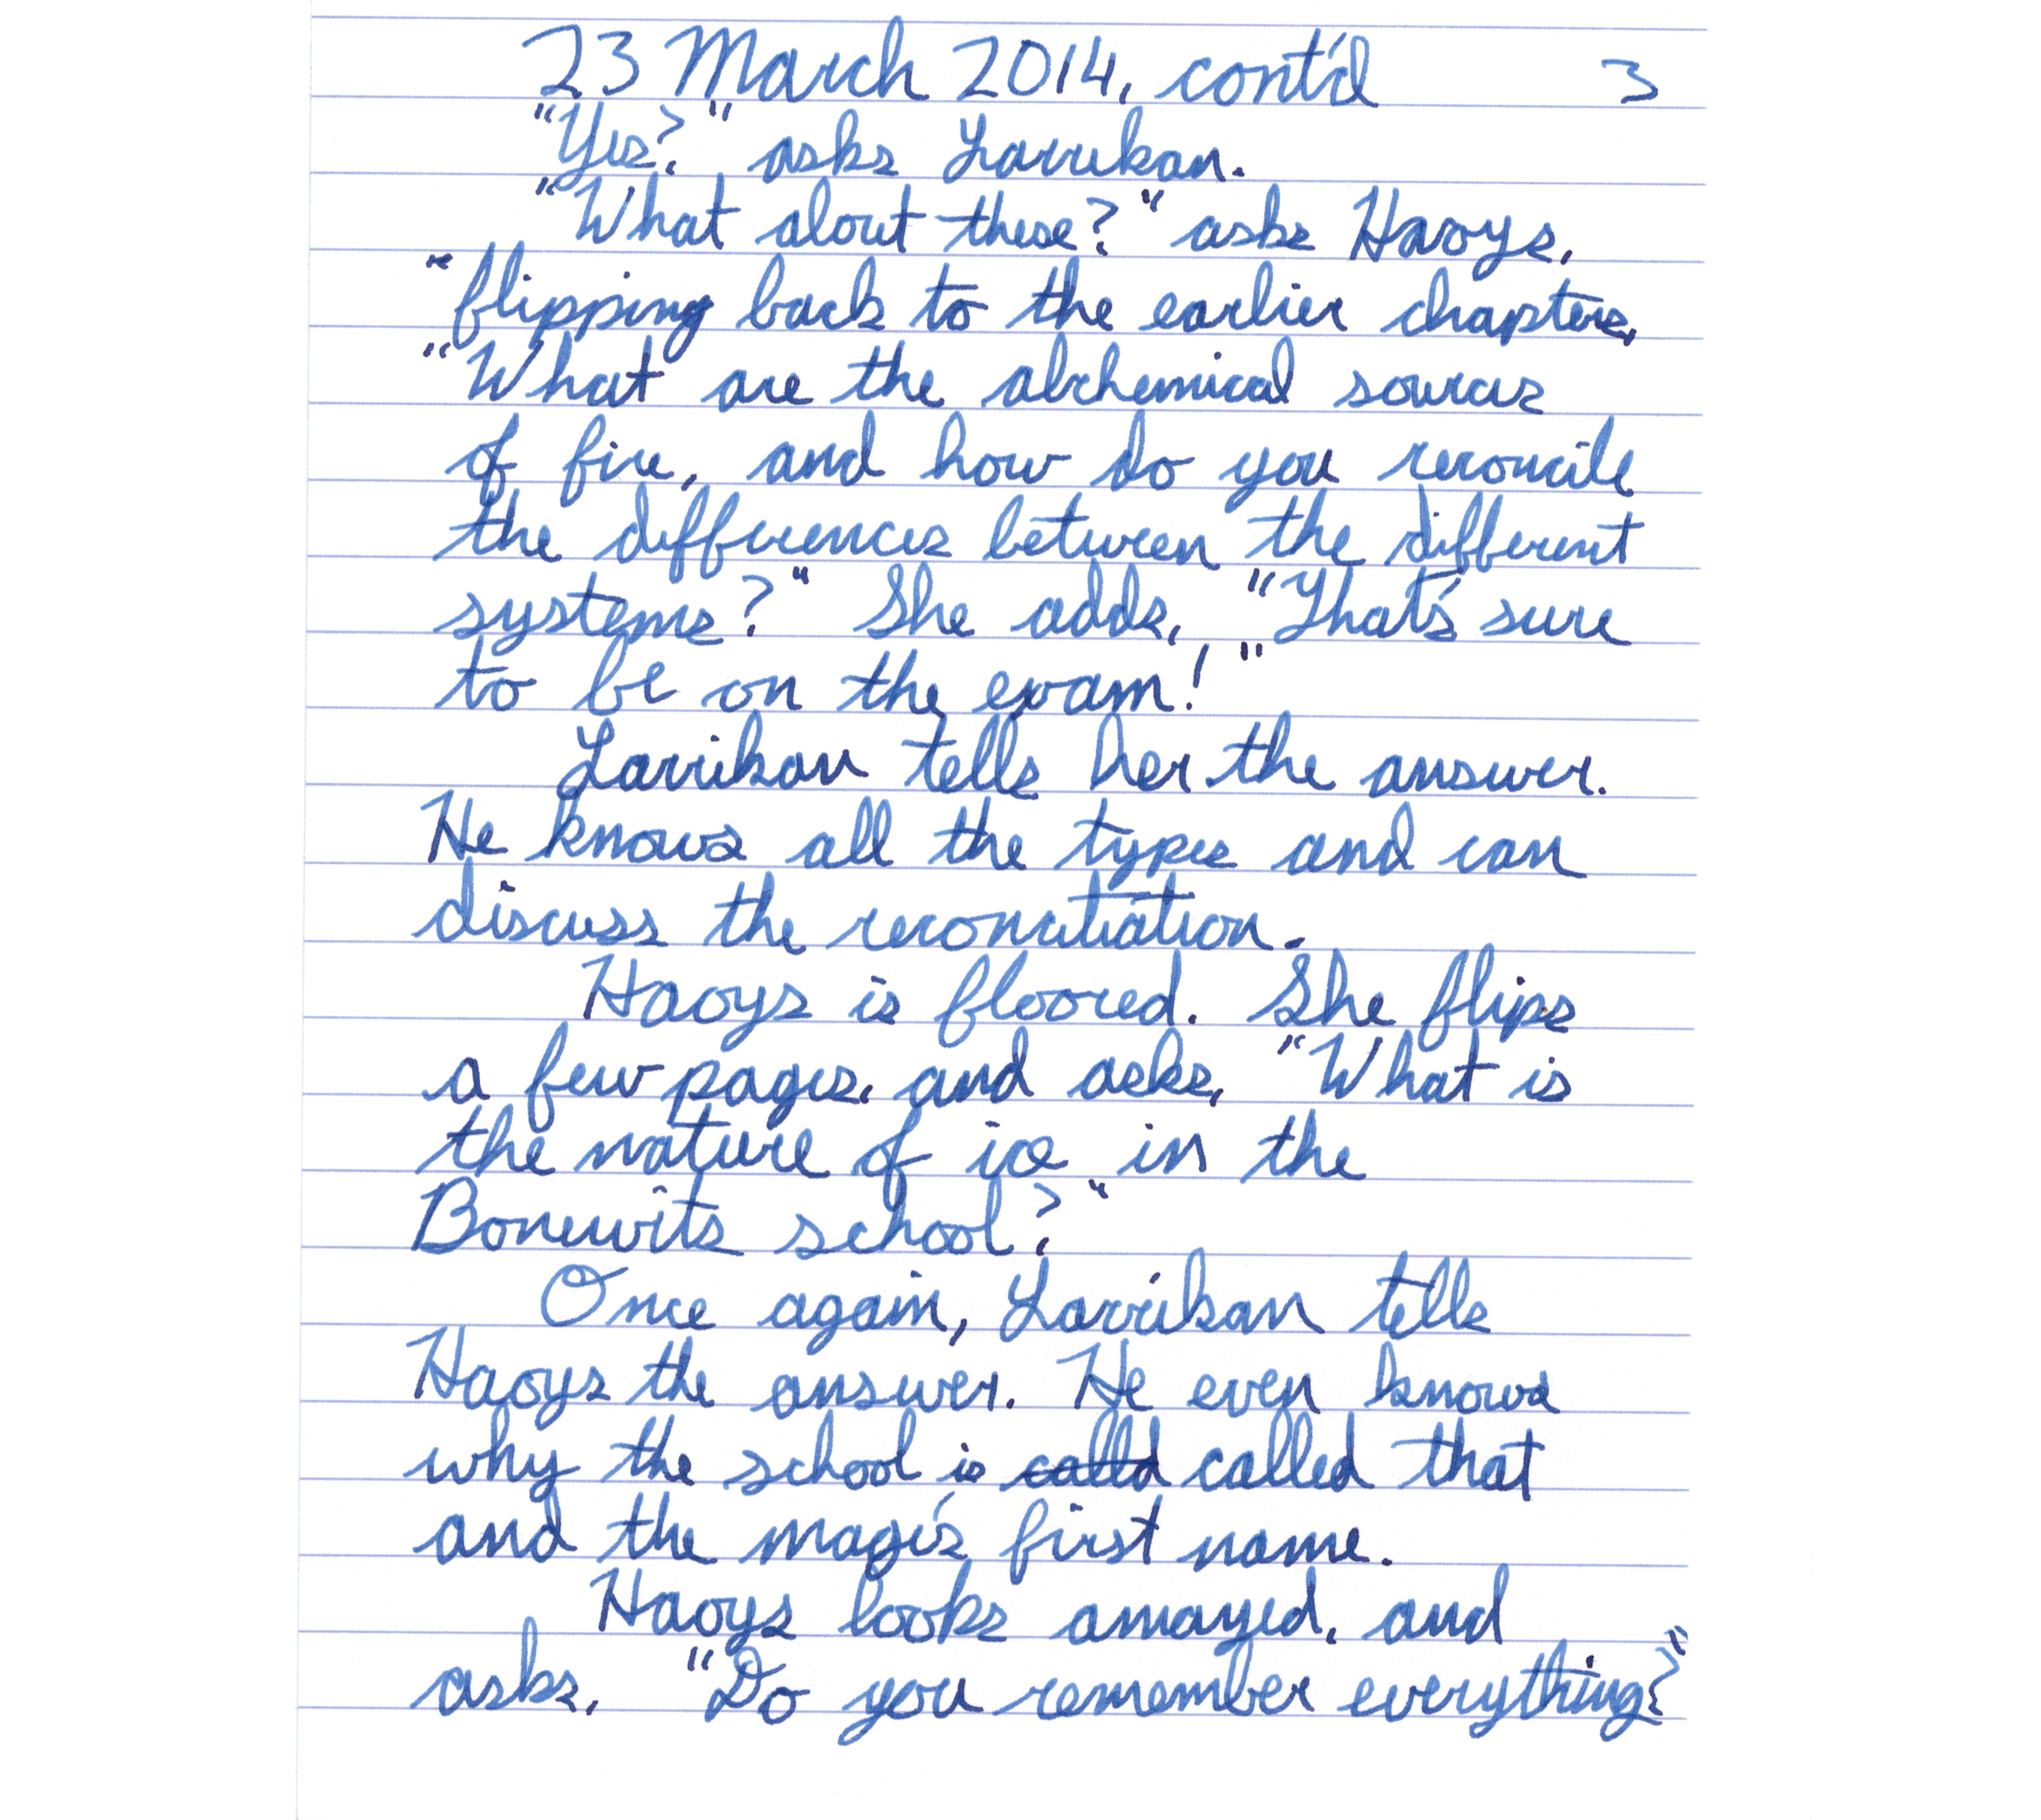 23 March 2014, cont'd 3
"Yes?" asks Larrikan.
"What about these?" asks Haoys,
"flipping back to the earlier chapters,
"What are the alchemical sources
of fire, and how do you reconcile
the differences between the different
systems?" She adds, "That's sure
to be on the exam!"
Larrikan tells her the answer.
He knows all the types and can
discuss the reconciliation.
Haoys is floored. She flips
a few pages, and asks, "What is
the nature of ice in the
Bonewits school?"
Once again, Larrikan tells
Haoys the answer. He even knows
why the school is called called that
and the magi's first name.
Haoys looks amazed, and
asks, "Do you remember everything?"